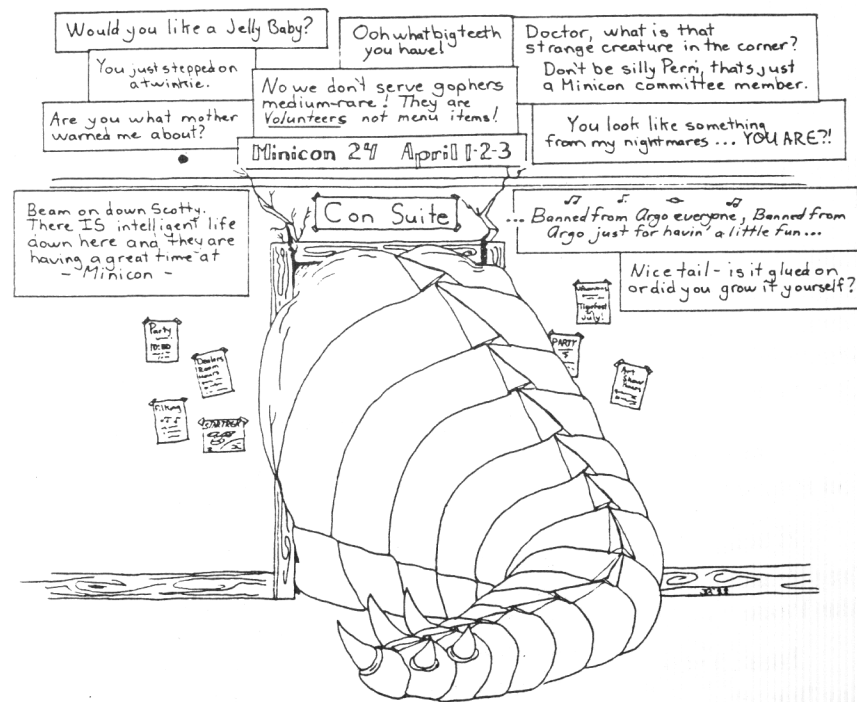 Would you like a Jelly Baby?
You just stepped on
a twinkie.
Are you what mother
warned me about?
Ooh what big teeth
you have!
No we don't serve gophers
medium-rare! They are
Volunteers not menu items!
Doctor, what is that
strange creature in the corner?
Don't be silly Perri, thats just
a Minicon committee member.
You look like something
from my nightmares ... YOU ARE?!
Minicon 24 April 1·2·3
Beam on down Scotty.
There IS intelligent life
down here and they are
having a great time at
- Minicon -
Con Suite
... Banned from Argo everyone, Banned from
Argo just for havin' a little fun...
Nice tail - is it glued on
or did you grow it yourself?
Party
10:00
Dealers
Room
Hours
Filking
PARTY
July!
Art
Show
Hours